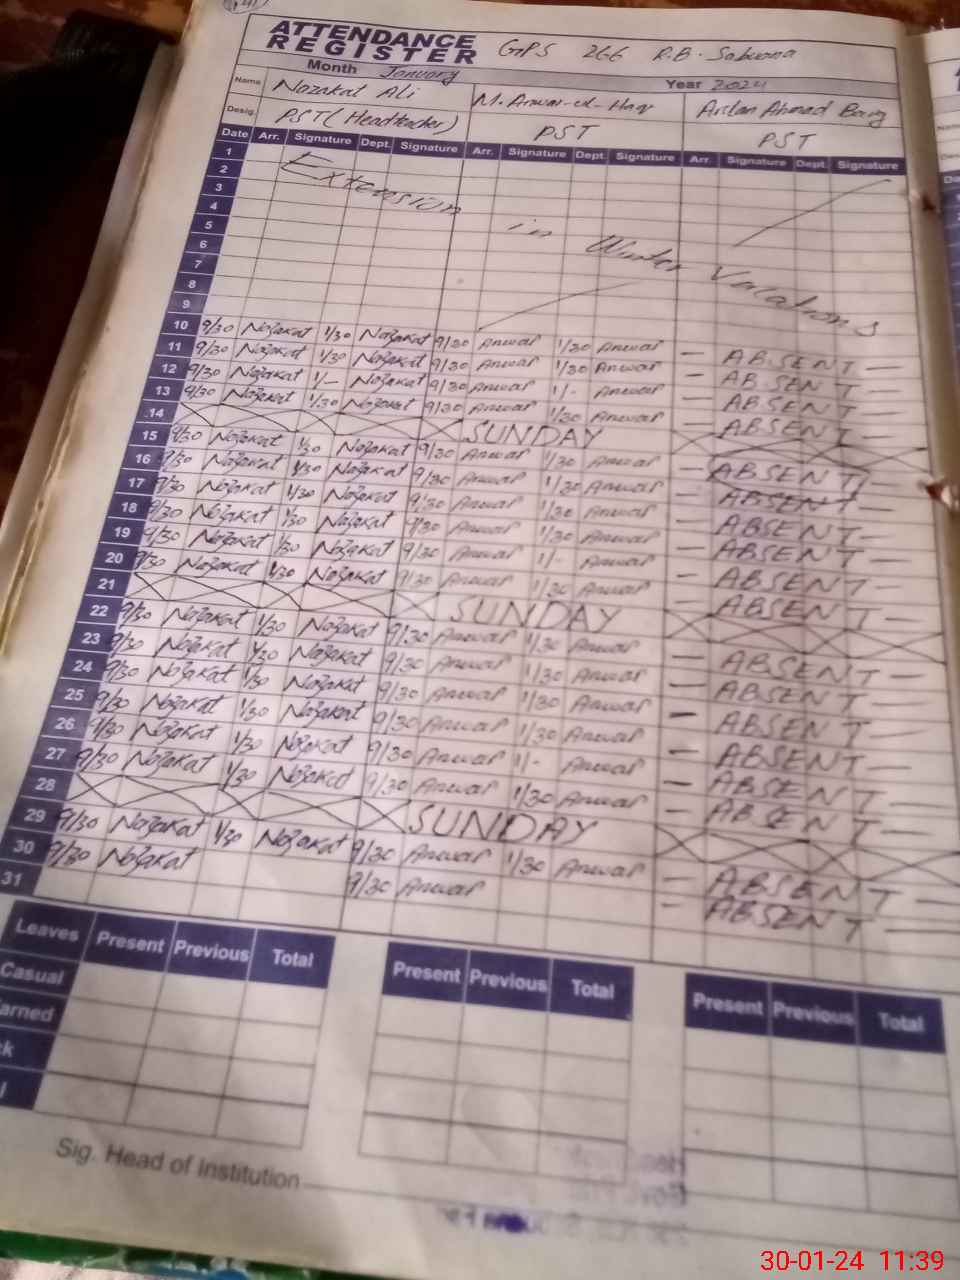 ATTENDANCE REGISTER GPS 266 R.B.
Month January Year 2024
Name Nozakat Ali M. Anwar-ul-Haq Arslan Ahmad
Desig. PST (Headteacher) PST PST
Date Arr. Signature Dept. Signature Arr. Signature Dept. Signature Arr. Signature Dept. Signature
1
2 Extension
3
4
5 in Winter Vacations
6
7
8
9
10 9/30 Nozakat 1/30 Nozakat 9/30 Anwar 1/30 Anwar — ABSENT —
11 9/30 Nozakat 1/30 Nozakat 9/30 Anwar 1/30 Anwar — ABSENT —
12 9/30 Nozakat 1/— Nozakat 9/30 Anwar 1/- Anwar — ABSENT —
13 9/30 Nozakat 1/30 Nozakat 9/30 Anwar 1/30 Anwar — ABSENT —
14 SUNDAY
15 9/30 Nozakat 1/30 Nozakat 9/30 Anwar 1/30 Anwar — ABSENT —
16 9/30 Nozakat 1/30 Nozakat 9/30 Anwar 1/30 Anwar — ABSENT —
17 9/30 Nozakat 1/30 Nozakat 9/30 Anwar 1/30 Anwar — ABSENT —
18 9/30 Nozakat 1/30 Nozakat 9/30 Anwar 1/30 Anwar — ABSENT —
19 9/30 Nozakat 1/30 Nozakat 9/30 Anwar 1/- Anwar — ABSENT —
20 9/30 Nozakat 1/30 Nozakat 9/30 Anwar 1/30 Anwar — ABSENT —
21 SUNDAY
22 9/30 Nozakat 1/30 Nozakat 9/30 Anwar 1/30 Anwar — ABSENT —
23 9/30 Nozakat 1/30 Nozakat 9/30 Anwar 1/30 Anwar — ABSENT —
24 9/30 Nozakat 1/30 Nozakat 9/30 Anwar 1/30 Anwar — ABSENT —
25 9/30 Nozakat 1/30 Nozakat 9/30 Anwar 1/30 Anwar — ABSENT —
26 9/30 Nozakat 1/30 Nozakat 9/30 Anwar 1/- Anwar — ABSENT —
27 9/30 Nozakat 1/30 Nozakat 9/30 Anwar 1/30 Anwar — ABSENT —
28 SUNDAY
29 9/30 Nozakat 1/30 Nozakat 9/30 Anwar 1/30 Anwar — ABSENT —
30 9/30 Nozakat 9/30 Anwar — ABSENT —
31
Leaves Present Previous Total Present Previous Total Present Previous Total
Casual
arned
ck
l
Sig. Head of Institution
30-01-24 11:39